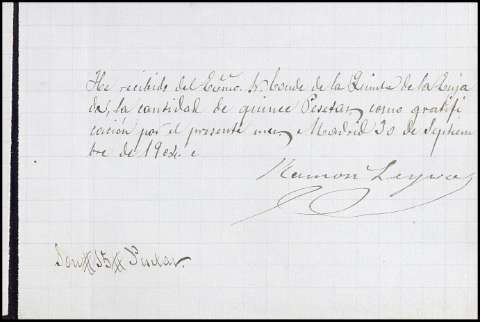 He recibido del Excmo. Sr. Conde de la Quinta de la Enja
da, la cantidad de quince Pesetas, como gratifi
cación por el presente mes, Madrid 30 de Septiem
bre de 1904.
Ramon Leyva
Son # 15 # Pesetas.